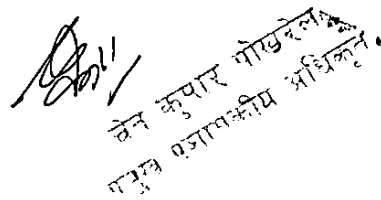 वेन कुमार पोखरेल
प्रमुख प्रशासकीय अधिकृत